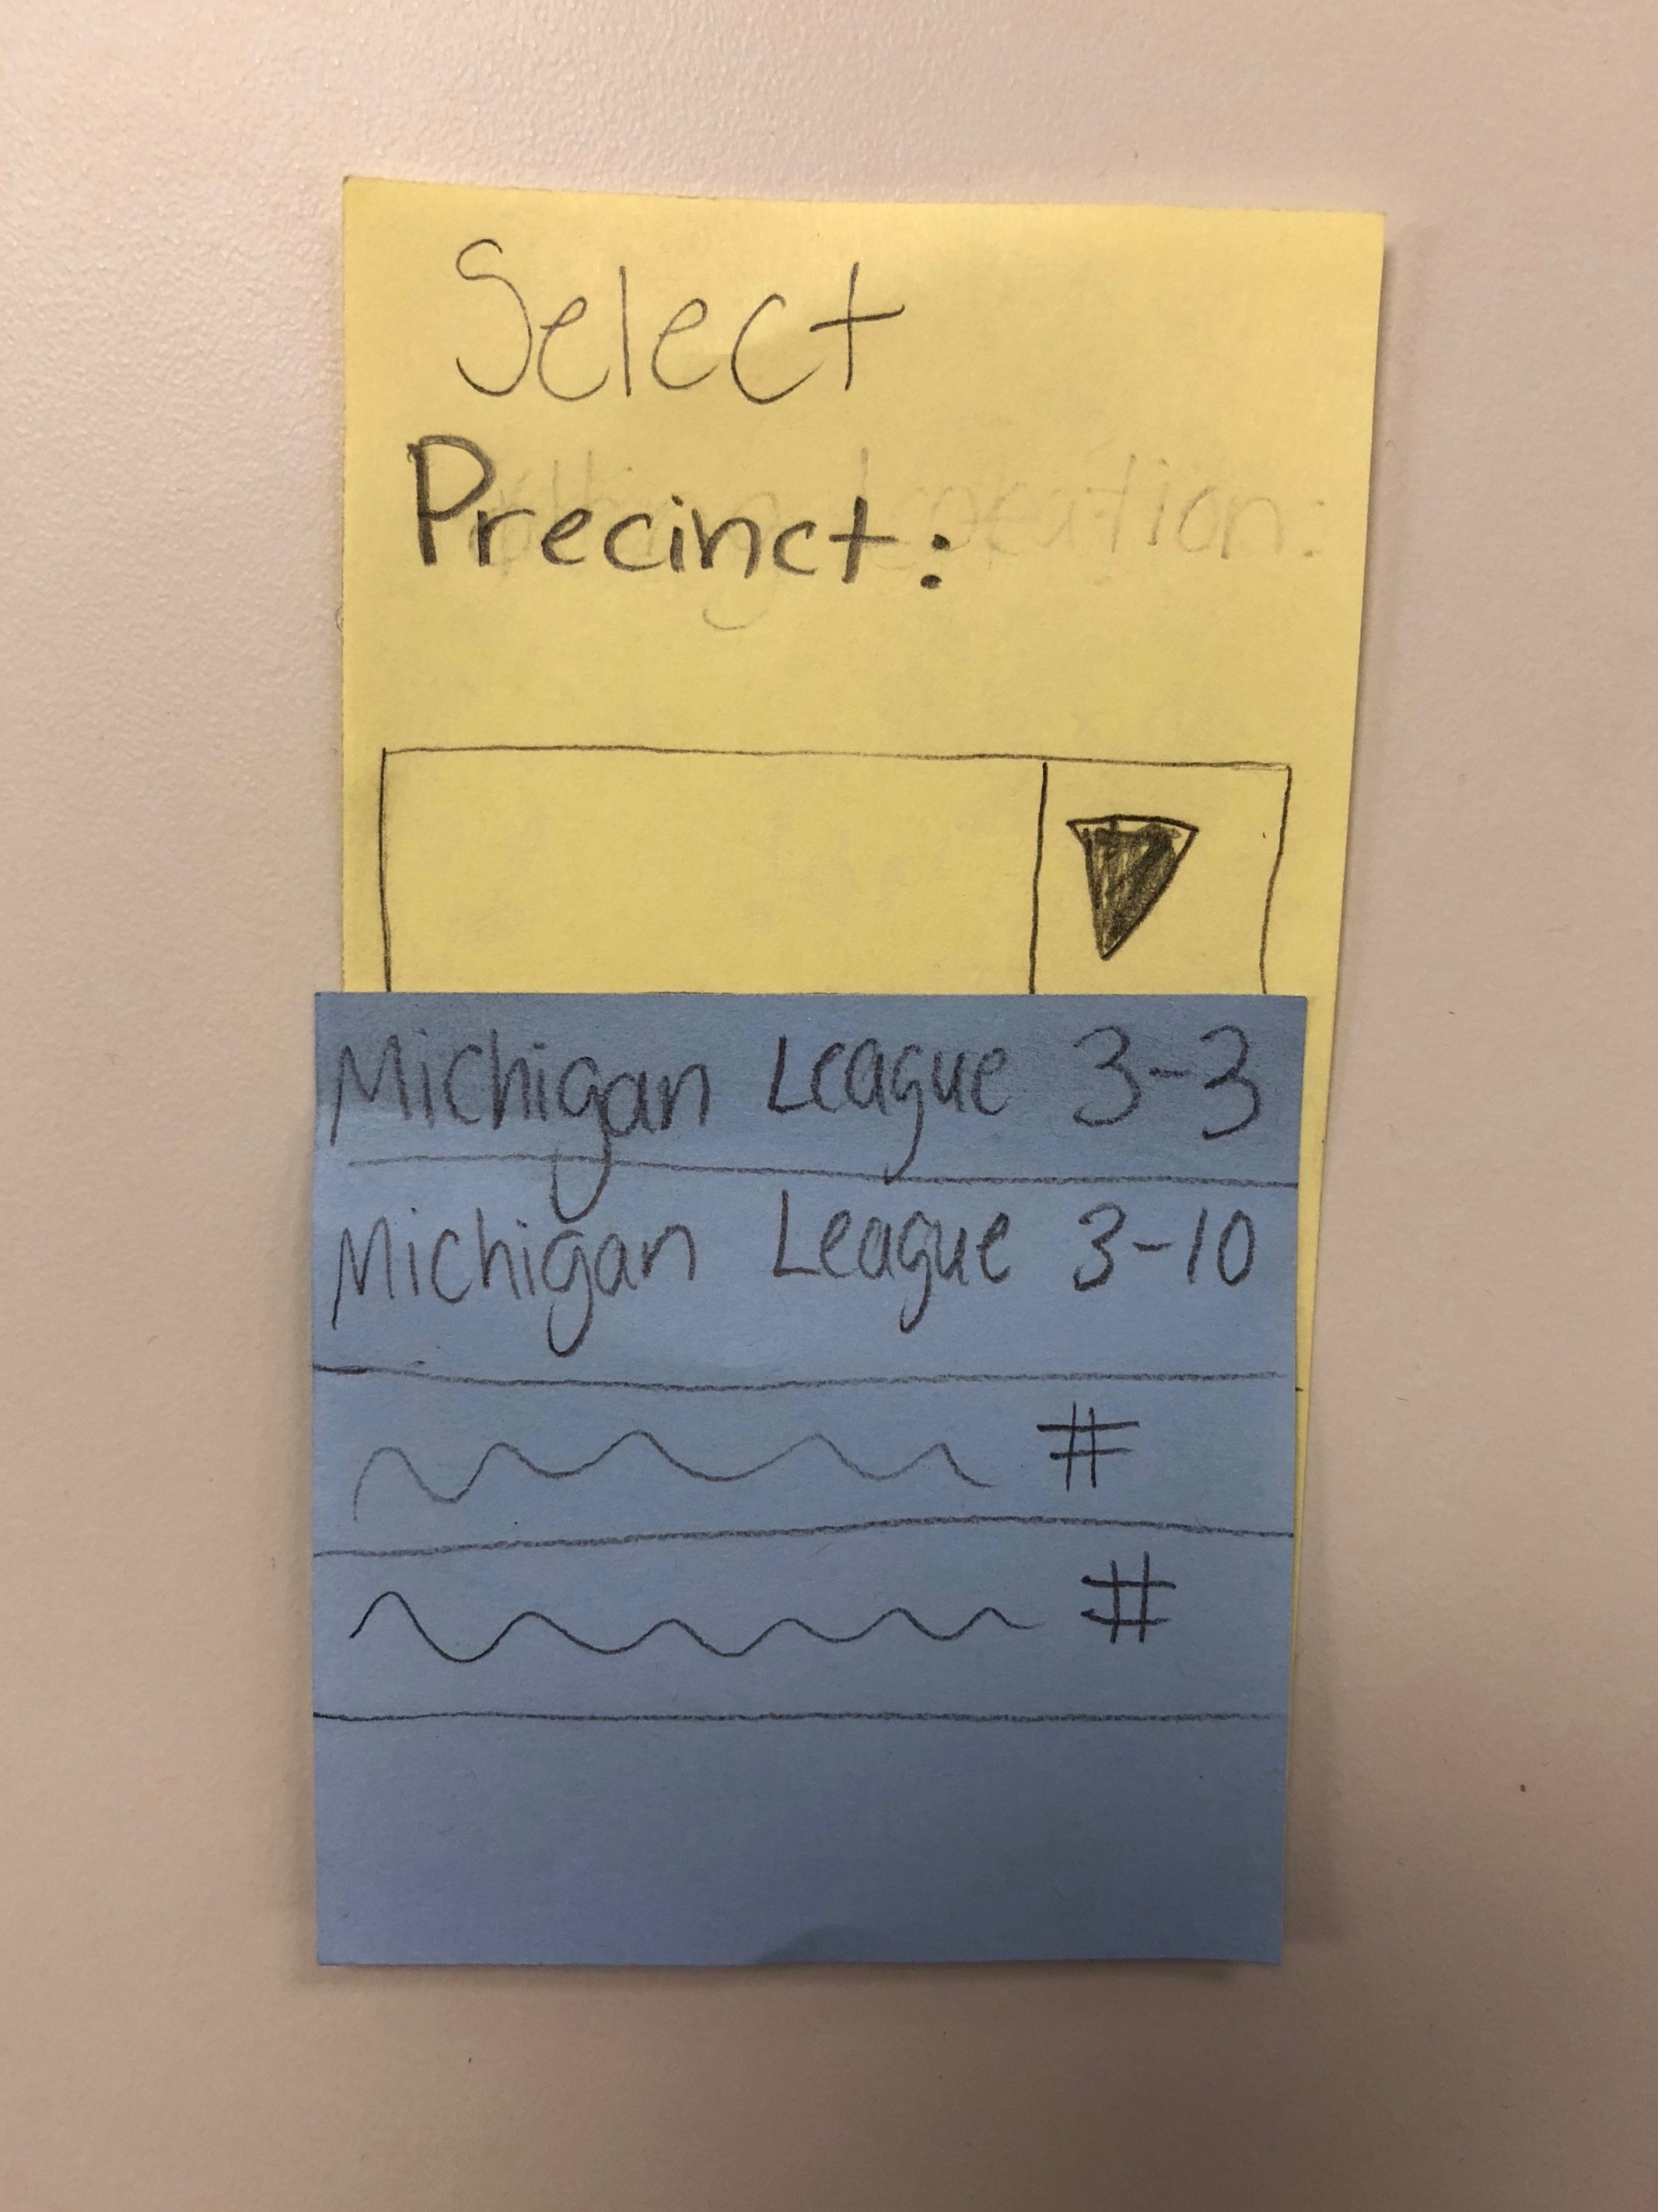 Select
Precinct:
Location:
Michigan League 3-3
Michigan League 3-10
#
#